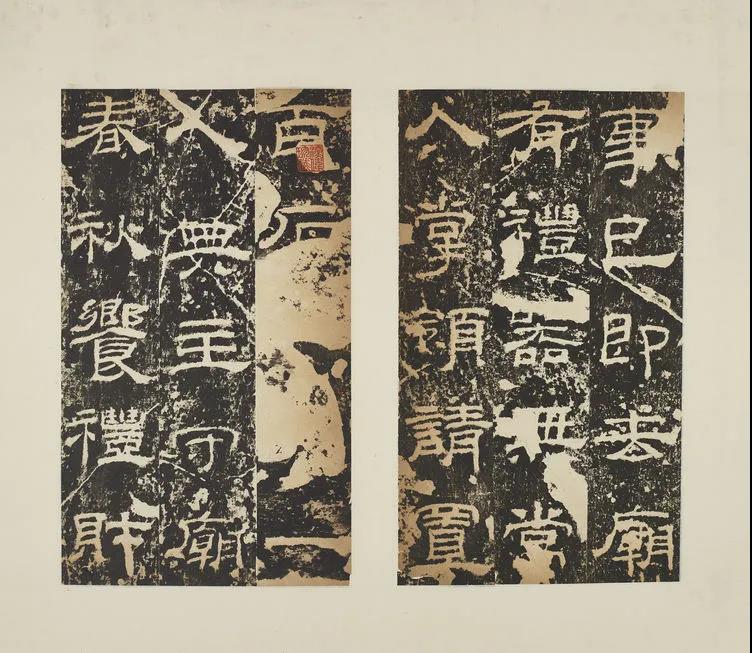 事已即去廟
有禮器無常
人掌領請置
百石
人典主守廟
春秋饗禮財